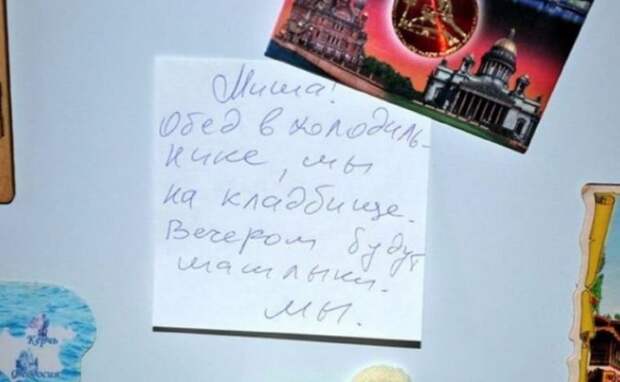 Миша!
Обед в холодиль-
нике, мы
на кладбище.
Вечером будут
машлыки.
мы.
Керчь
Феодосия